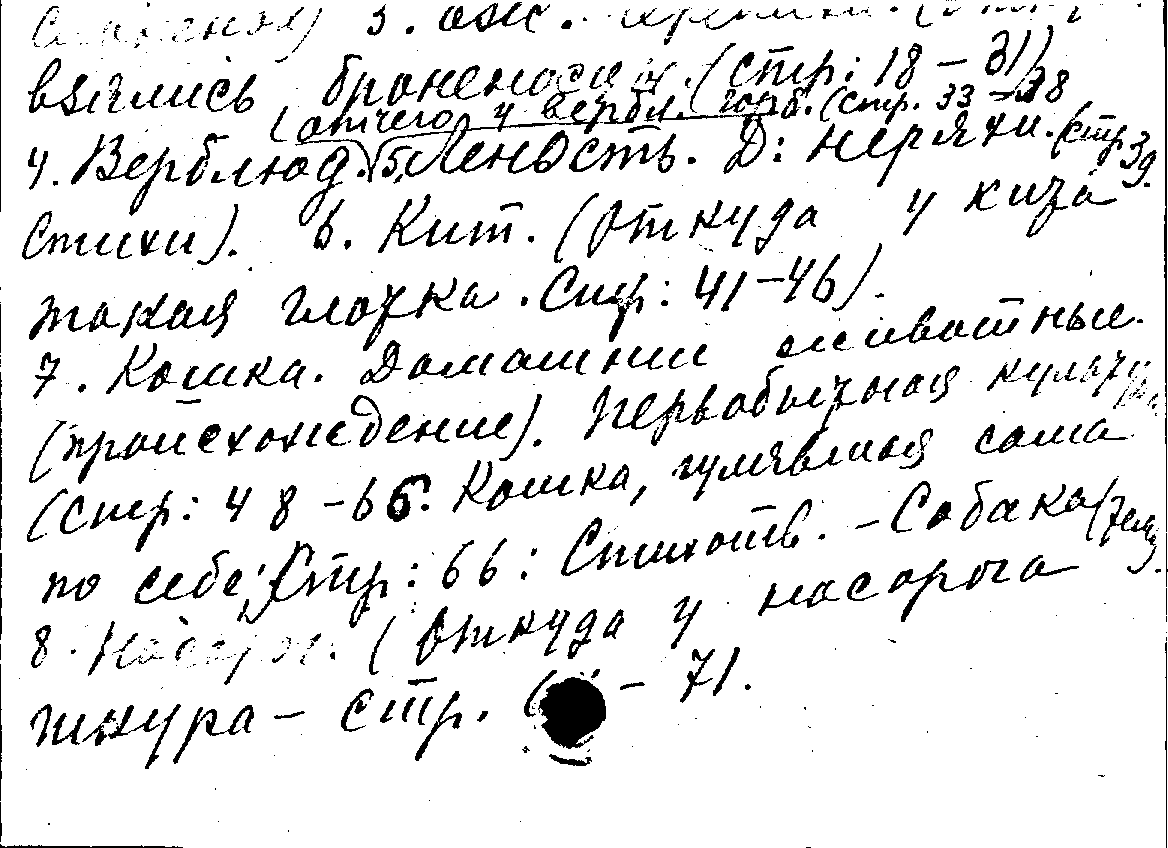 3.
взялись броненосцы. (стр: 18 – 31)
(отчего у вербл. горб. (стр. 33 – 38
4. Верблюд. 5. Леность. Д: неряхи. (стр 39.
Стихи). 6. Кит. (Откуда у кита
такая глотка. Стр: 41–46).
7. Кошка. Домашние животные.
(происхождение). Первобытная культура
(Стр: 48 – 66. Кошка, гулявшая сама
по себе; Стр: 66: Стихотв. – Собака
8. Носорог. (Откуда у носорога
шкура – стр. – 71.